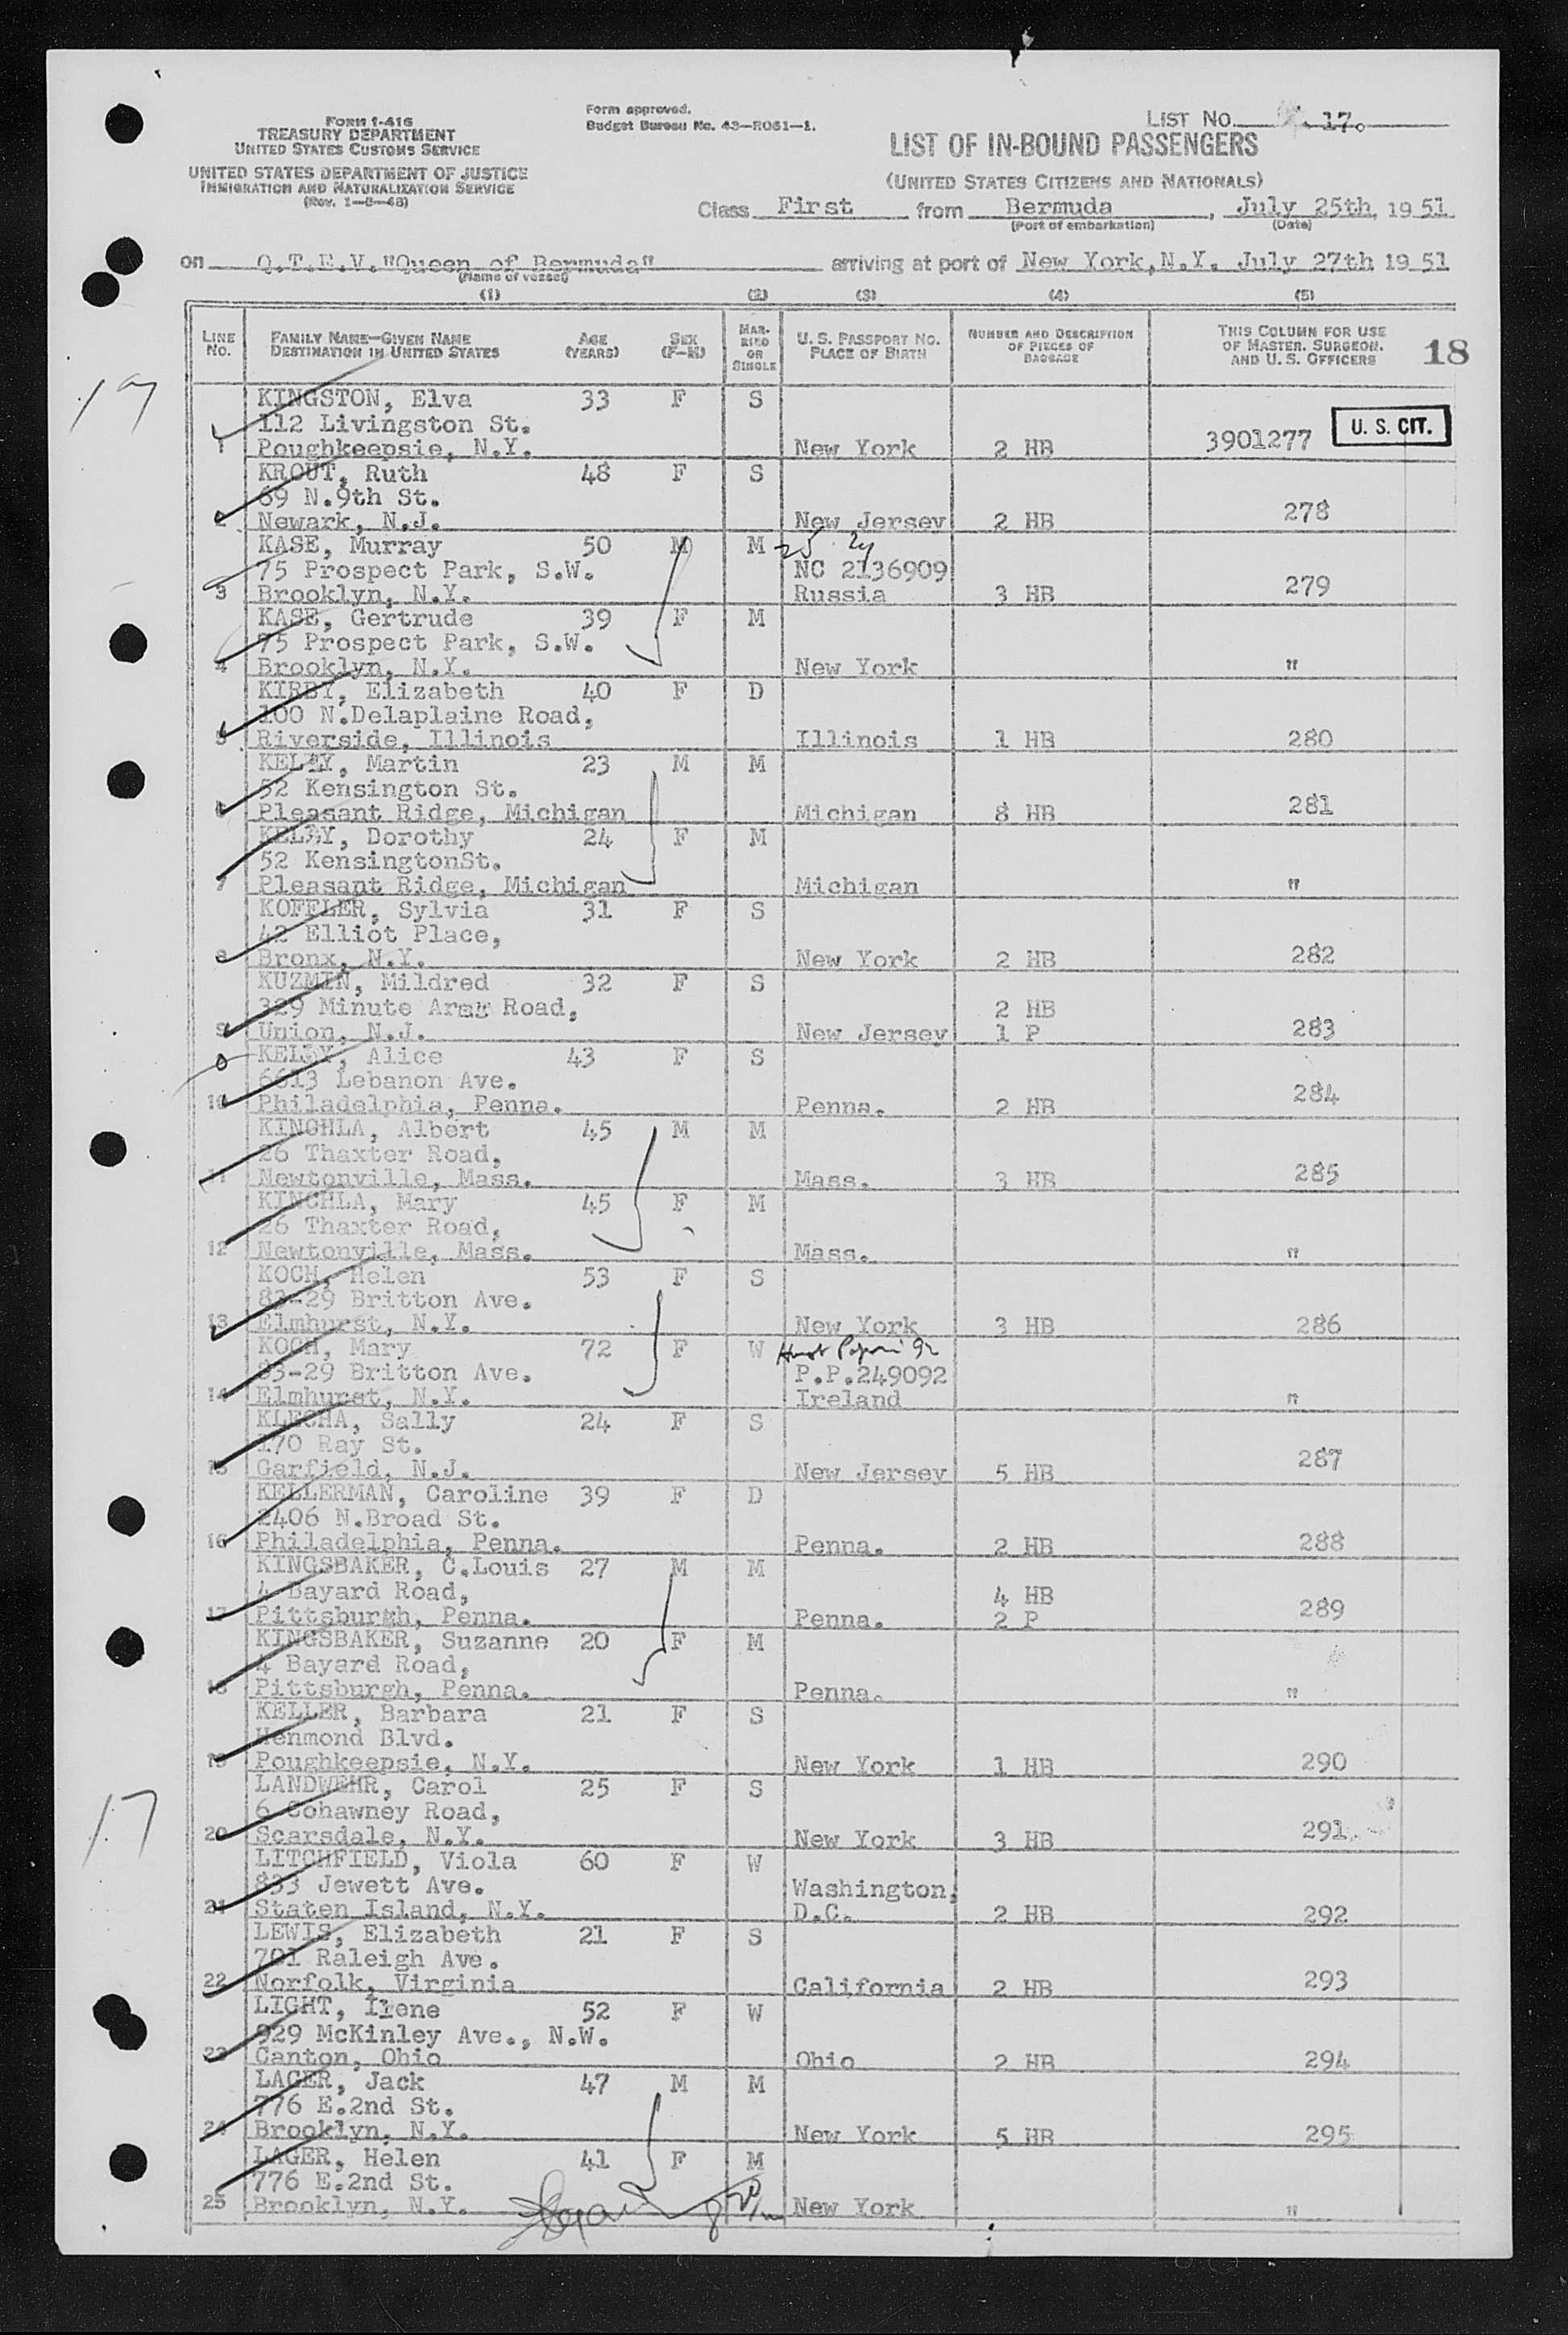 FORM I-416
TREASURY DEPARTMENT
UNITED STATES CUSTOMS SERVICE
UNITED STATES DEPARTMENT OF JUSTICE
IMMIGRATION AND NATURALIZATION SERVICE
(Rev. 1-6-48)
Form approved.
Budget Bureau No. 43-R061-1.
LIST NO. 17.
LIST OF IN-BOUND PASSENGERS
(UNITED STATES CITIZENS AND NATIONALS)
Class First from Bermuda, July 25th, 1951
(Port of embarkation) (Date)
on Q.T.E.V."Queen of Bermuda" arriving at port of New York,N.Y. July 27th 1951
(Name of vessel)
(1) (2) (3) (4) (5)
LINE NO. FAMILY NAME—GIVEN NAME DESTINATION IN UNITED STATES AGE (YEARS) SEX (F-M) MARRIED OR SINGLE U. S. PASSPORT NO. PLACE OF BIRTH NUMBER AND DESCRIPTION OF PIECES OF BAGGAGE THIS COLUMN FOR USE OF MASTER, SURGEON, AND U. S. OFFICERS 18
17
KINGSTON, Elva 33 F S
112 Livingston St.
1 Poughkeepsie, N.Y. New York 2 HB 3901277 U. S. CIT.
KROUT, Ruth 48 F S
69 N.9th St.
2 Newark, N.J. New Jersey 2 HB 278
KASE, Murray 50 M M
75 Prospect Park, S.W. NC 2136909
3 Brooklyn, N.Y. Russia 3 HB 279
KASE, Gertrude 39 F M
75 Prospect Park, S.W.
4 Brooklyn, N.Y. New York "
KIRBY, Elizabeth 40 F D
100 N.Delaplaine Road,
5 Riverside, Illinois Illinois 1 HB 280
Martin 23 M M
52 Kensington St.
6 Pleasant Ridge, Michigan Michigan 8 HB 281
Dorothy 24 F M
52 KensingtonSt.
7 Pleasant Ridge, Michigan Michigan "
KOFFLER, Sylvia 31 F S
42 Elliot Place,
8 Bronx, N.Y. New York 2 HB 282
KUZMIN, Mildred 32 F S
329 Minute Road, 2 HB
9 Union, N.J. New Jersey 1 P 283
Alice 43 F S
6613 Lebanon Ave.
10 Philadelphia, Penna. Penna. 2 HB 284
KINCHLA, Albert 45 M M
26 Thaxter Road,
11 Newtonville, Mass. Mass. 3 HB 285
KINCHLA, Mary 45 F M
26 Thaxter Road,
12 Newtonville, Mass. Mass. "
KOCH, Helen 53 F S
83-29 Britton Ave.
13 Elmhurst, N.Y. New York 3 HB 286
KOCH, Mary 72 F W
83-29 Britton Ave. P.P.249092
14 Elmhurst, N.Y. Ireland "
KLECHA, Sally 24 F S
170 Ray St.
15 Garfield, N.J. New Jersey 5 HB 287
KELLERMAN, Caroline 39 F D
2406 N.Broad St.
16 Philadelphia, Penna. Penna. 2 HB 288
KINGSBAKER, C.Louis 27 M M
4 Bayard Road, 4 HB
17 Pittsburgh, Penna. Penna. 2 P 289
KINGSBAKER, Suzanne 20 F M
4 Bayard Road,
18 Pittsburgh, Penna. Penna. "
KELLER, Barbara 21 F S
Henmond Blvd.
19 Poughkeepsie, N.Y. New York 1 HB 290
LANDWEHR, Carol 25 F S
6 Cohawney Road,
20 Scarsdale, N.Y. New York 3 HB 291
17
LITCHFIELD, Viola 60 F W
833 Jewett Ave. Washington,
21 Staten Island, N.Y. D.C. 2 HB 292
LEWIS, Elizabeth 21 F S
701 Raleigh Ave.
22 Norfolk, Virginia California 2 HB 293
LIGHT, Irene 52 F W
929 McKinley Ave., N.W.
23 Canton, Ohio Ohio 2 HB 294
LAGER, Jack 47 M M
776 E.2nd St.
24 Brooklyn, N.Y. New York 5 HB 295
LAGER, Helen 41 F M
776 E.2nd St.
25 Brooklyn, N.Y. New York "